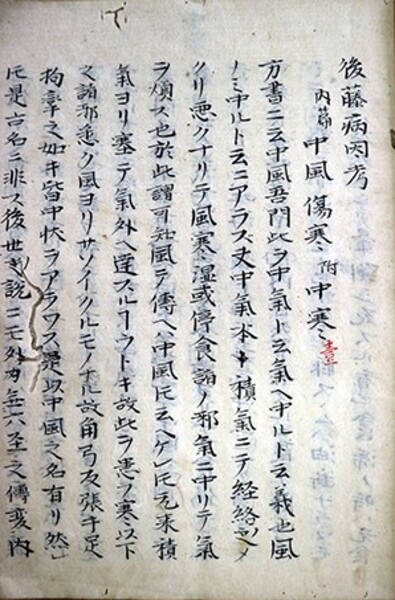 後藤病因考
内篇 中風傷寒 附中寒 壹
方書ニ云中風吾門此ヲ中氣ト云氣ヘ中ルト云義也風
ノミ中ルト云ニアラス丈中氣本ト積氣ニテ経絡
クリ悪クナリテ風寒湿或停食諸ノ邪氣ニ中リテ氣
ヲ煩ス也於此謂可知風ヲ傳ヘ中風ト云ヘケレ𪜈元来積
氣ヨリ塞テ氣外ヘ達スルヿウトキ故此ヲ悪ヲ寒以下
之諸邪悉ク風ヨリサソイクルモノナル故角弓反張手足
拘攣之如キ皆中状ヲアラワス是以中風之名有リ然
𪜈是古名ニ非ス後世ノ説ニモ外勿六至之傳変内